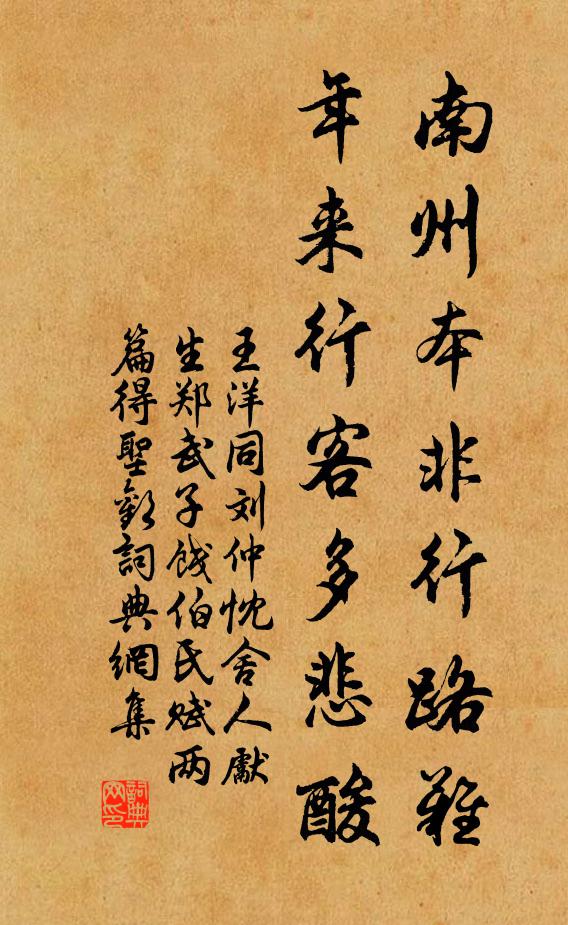 南州本非行路难
年来行客多悲酸
王洋同刘仲忱舍人獻
生郑武子饯伯氏赋两
篇得聖詞典網集
詞典网印